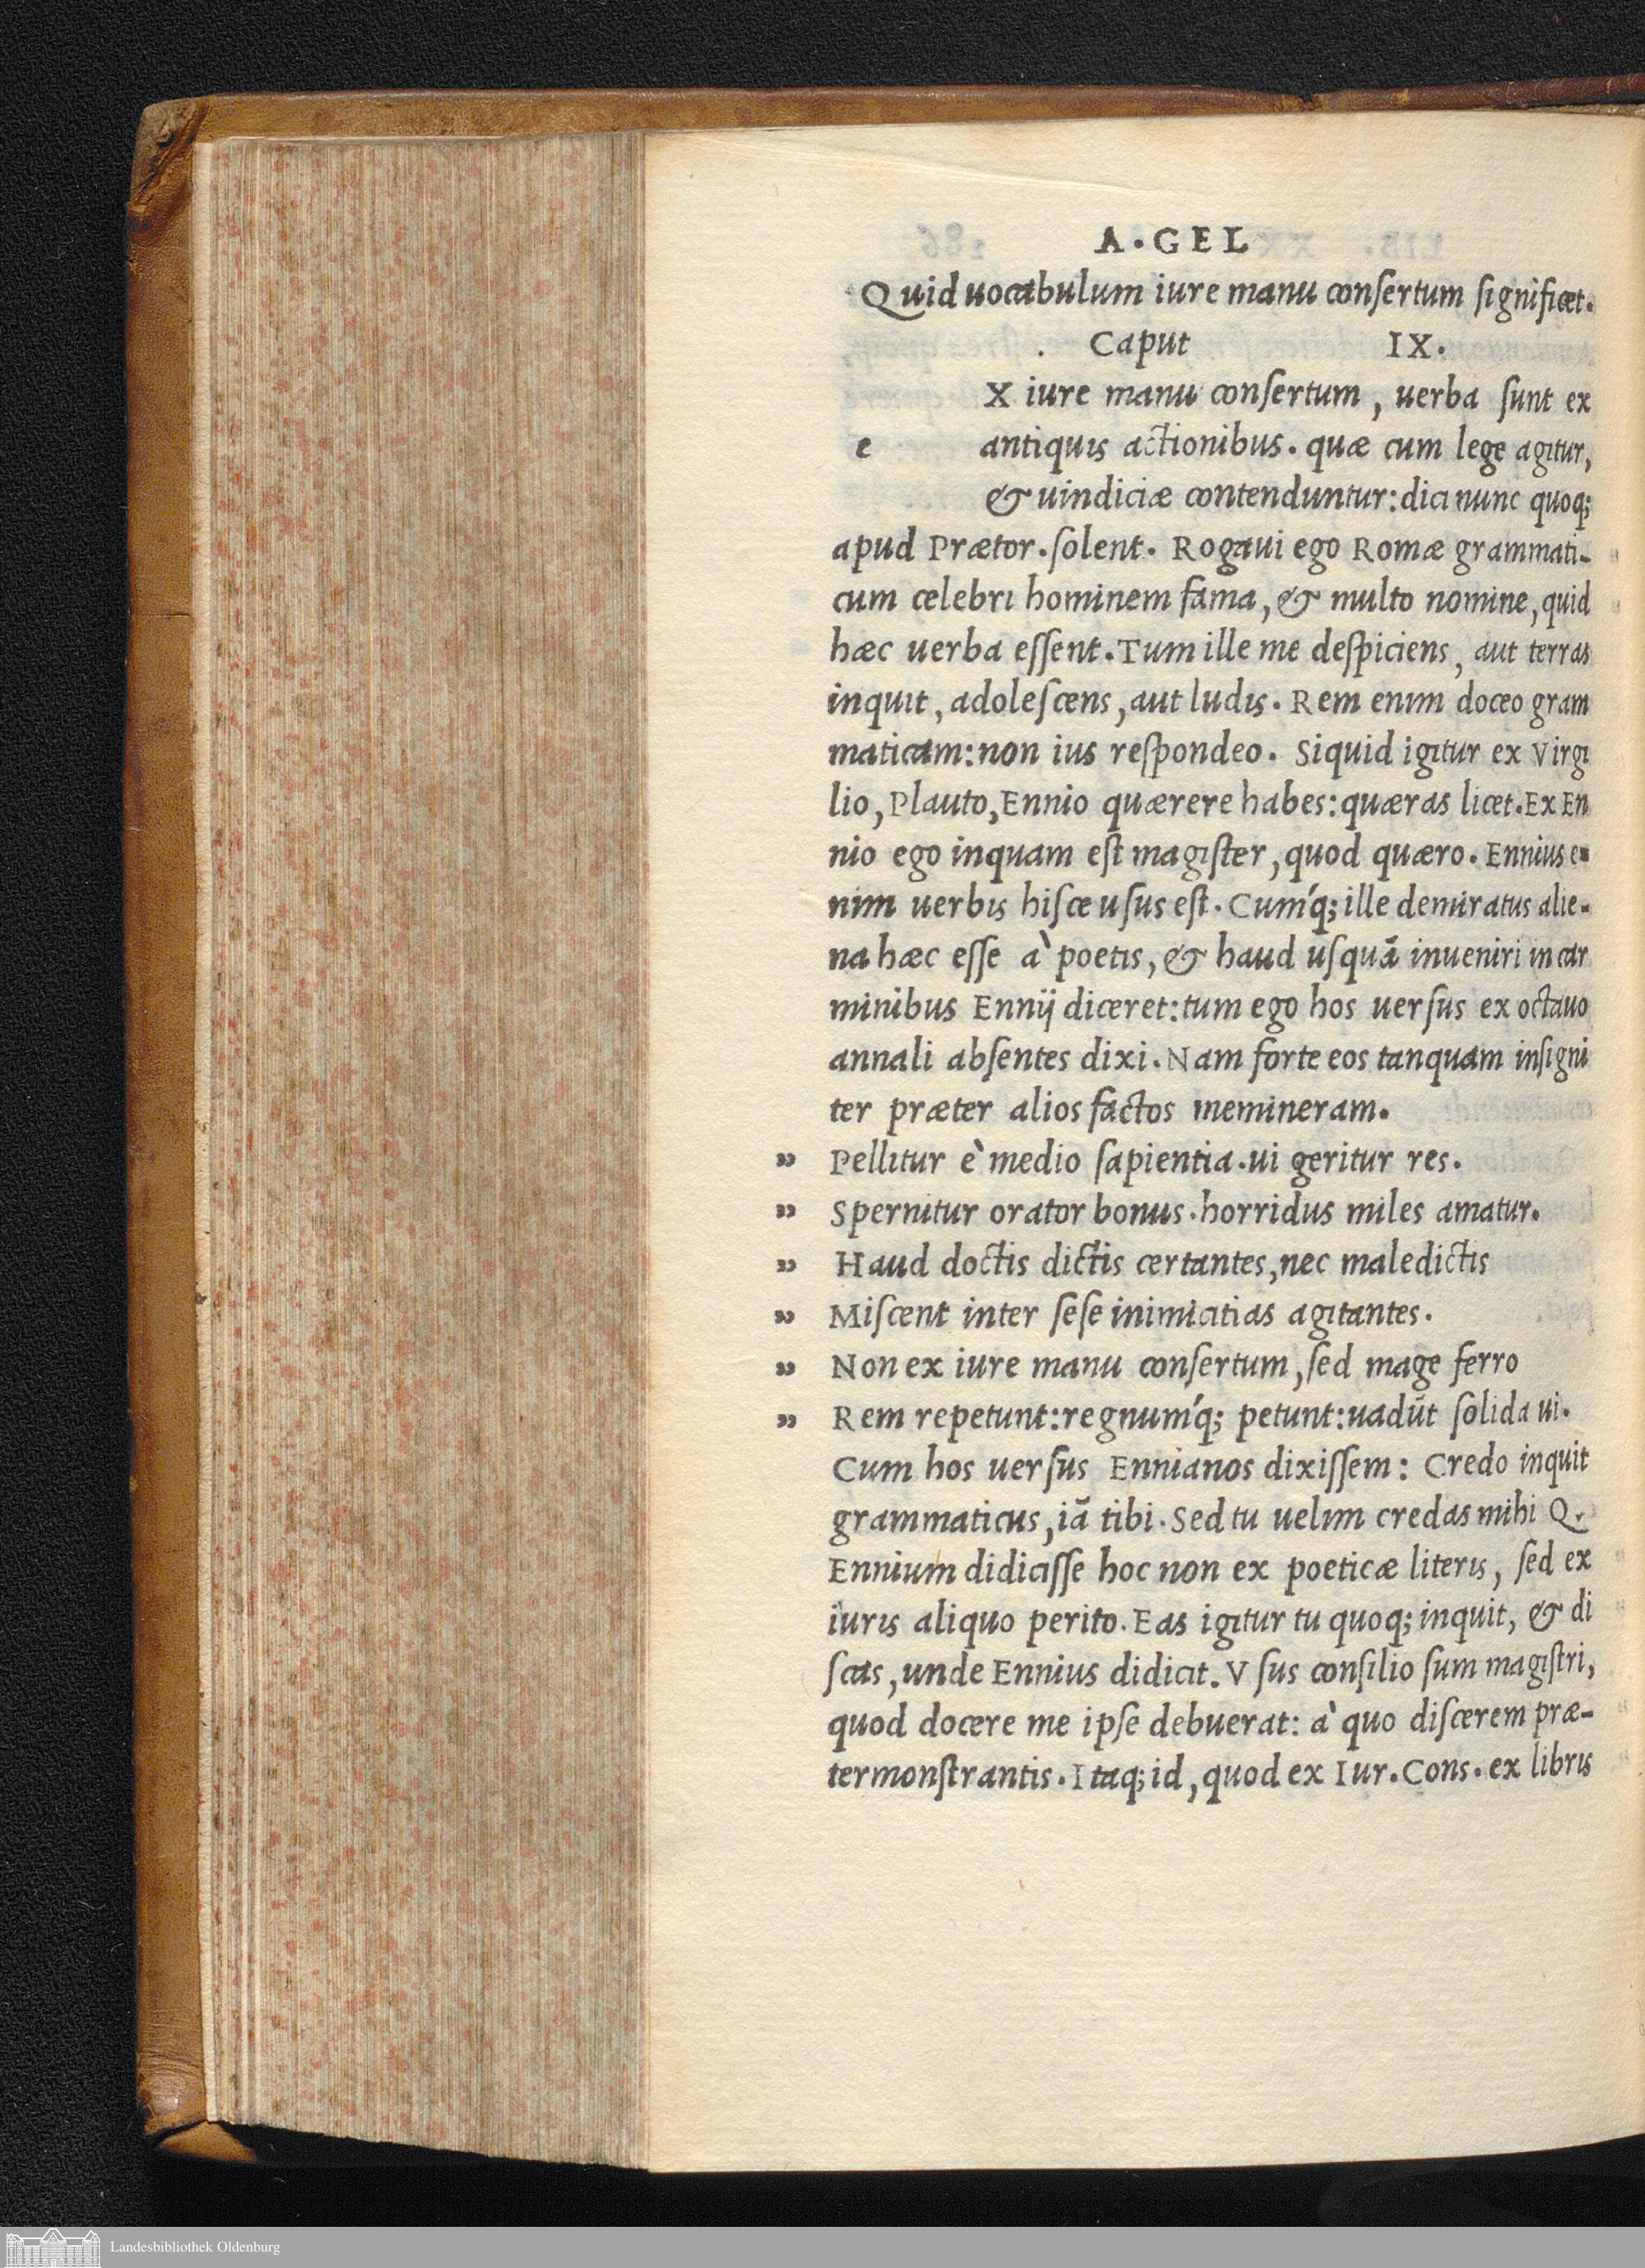 A. GEL
Quid uocabulum iure manu conſertum ſignificet.
Caput IX.
X iure manu conſertum, uerba ſunt ex
e antiquis actionibus. quæ cum lege agitur,
& uindiciæ contenduntur: dici nunc quoq;
apud Prætor. ſolent. Rogaui ego Romæ grammati-
cum celebri hominem fama, & multo nomine, quid
hæc uerba eſſent. Tum ille me deſpiciens, aut terras
inquit, adoleſcens, aut ludis. Rem enim doceo gram
maticam: non ius reſpondeo. Siquid igitur ex Virgi
lio, Plauto, Ennio quærere habes: quæras licet. Ex En
nio ego inquam eſt magiſter, quod quæro. Ennius e-
nim uerbis hiſce uſus eſt. Cum'q; ille demiratus alie-
na hæc eſſe à poetis, & haud uſquã inueniri in car
minibus Ennij diceret: tum ego hos uerſus ex octauo
annali abſentes dixi. Nam forte eos tanquam inſigni
ter præter alios factos memineram.
" Pellitur è medio ſapientia. ui geritur res.
" Spernitur orator bonus. horridus miles amatur.
" Haud doctis dictis certantes, nec maledictis
" Miſcent inter ſeſe inimicitias agitantes.
" Non ex iure manu conſertum, ſed mage ferro
" Rem repetunt: regnum'q; petunt: uadũt ſolida ui.
Cum hos uerſus Ennianos dixiſſem: Credo inquit
grammaticus, iã tibi. Sed tu uelim credas mihi Q.
Ennium didiciſſe hoc non ex poeticæ literis, ſed ex
iuris aliquo perito. Eas igitur tu quoq; inquit, & di
ſcas, unde Ennius didicit. Vſus conſilio ſum magiſtri,
quod docere me ipſe debuerat: à quo diſcerem præ-
termonſtrantis. Itaq; id, quod ex Iur. Conſ. ex libris
Landesbibliothek Oldenburg